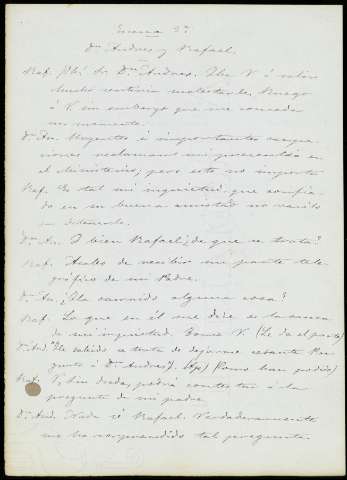 Escena 2ª
Dn. Andres y Rafael.
Raf. Ah! Sr. Dn. Andres. Iba V. á salir
Mucho sentiria molestarle. Ruego
á V. sin embargo que me conceda
un momento.
Dn. An. Urgentes é importantes ocupa-
ciones reclaman mi presencia en
el Ministerio, pero esto no importa
Raf. Es tal mi inquietud que confia-
do en su buena amistad no vacilo
en detenerle.
Dn. An. I bien Rafael; de que se trata?
Raf. Acabo de recibir un parte tele-
gráfico de mi Padre.
Dn. An. ¿Ha ocurrido alguna cosa?
Raf. Lo que en él me dice es la causa
de mi inquietud. Tome V. (Le da el parte)
Dn. And. "He sabido se trata de dejarme cesante Pre-
gunta á Dn. Andres". (Ap) (Como han podido)
Raf. V. sin duda podrá contestar á la
pregunta de mi padre
Dn. And. Nada sé Rafael. Verdaderamente
me ha sorprendido tal pregunta.